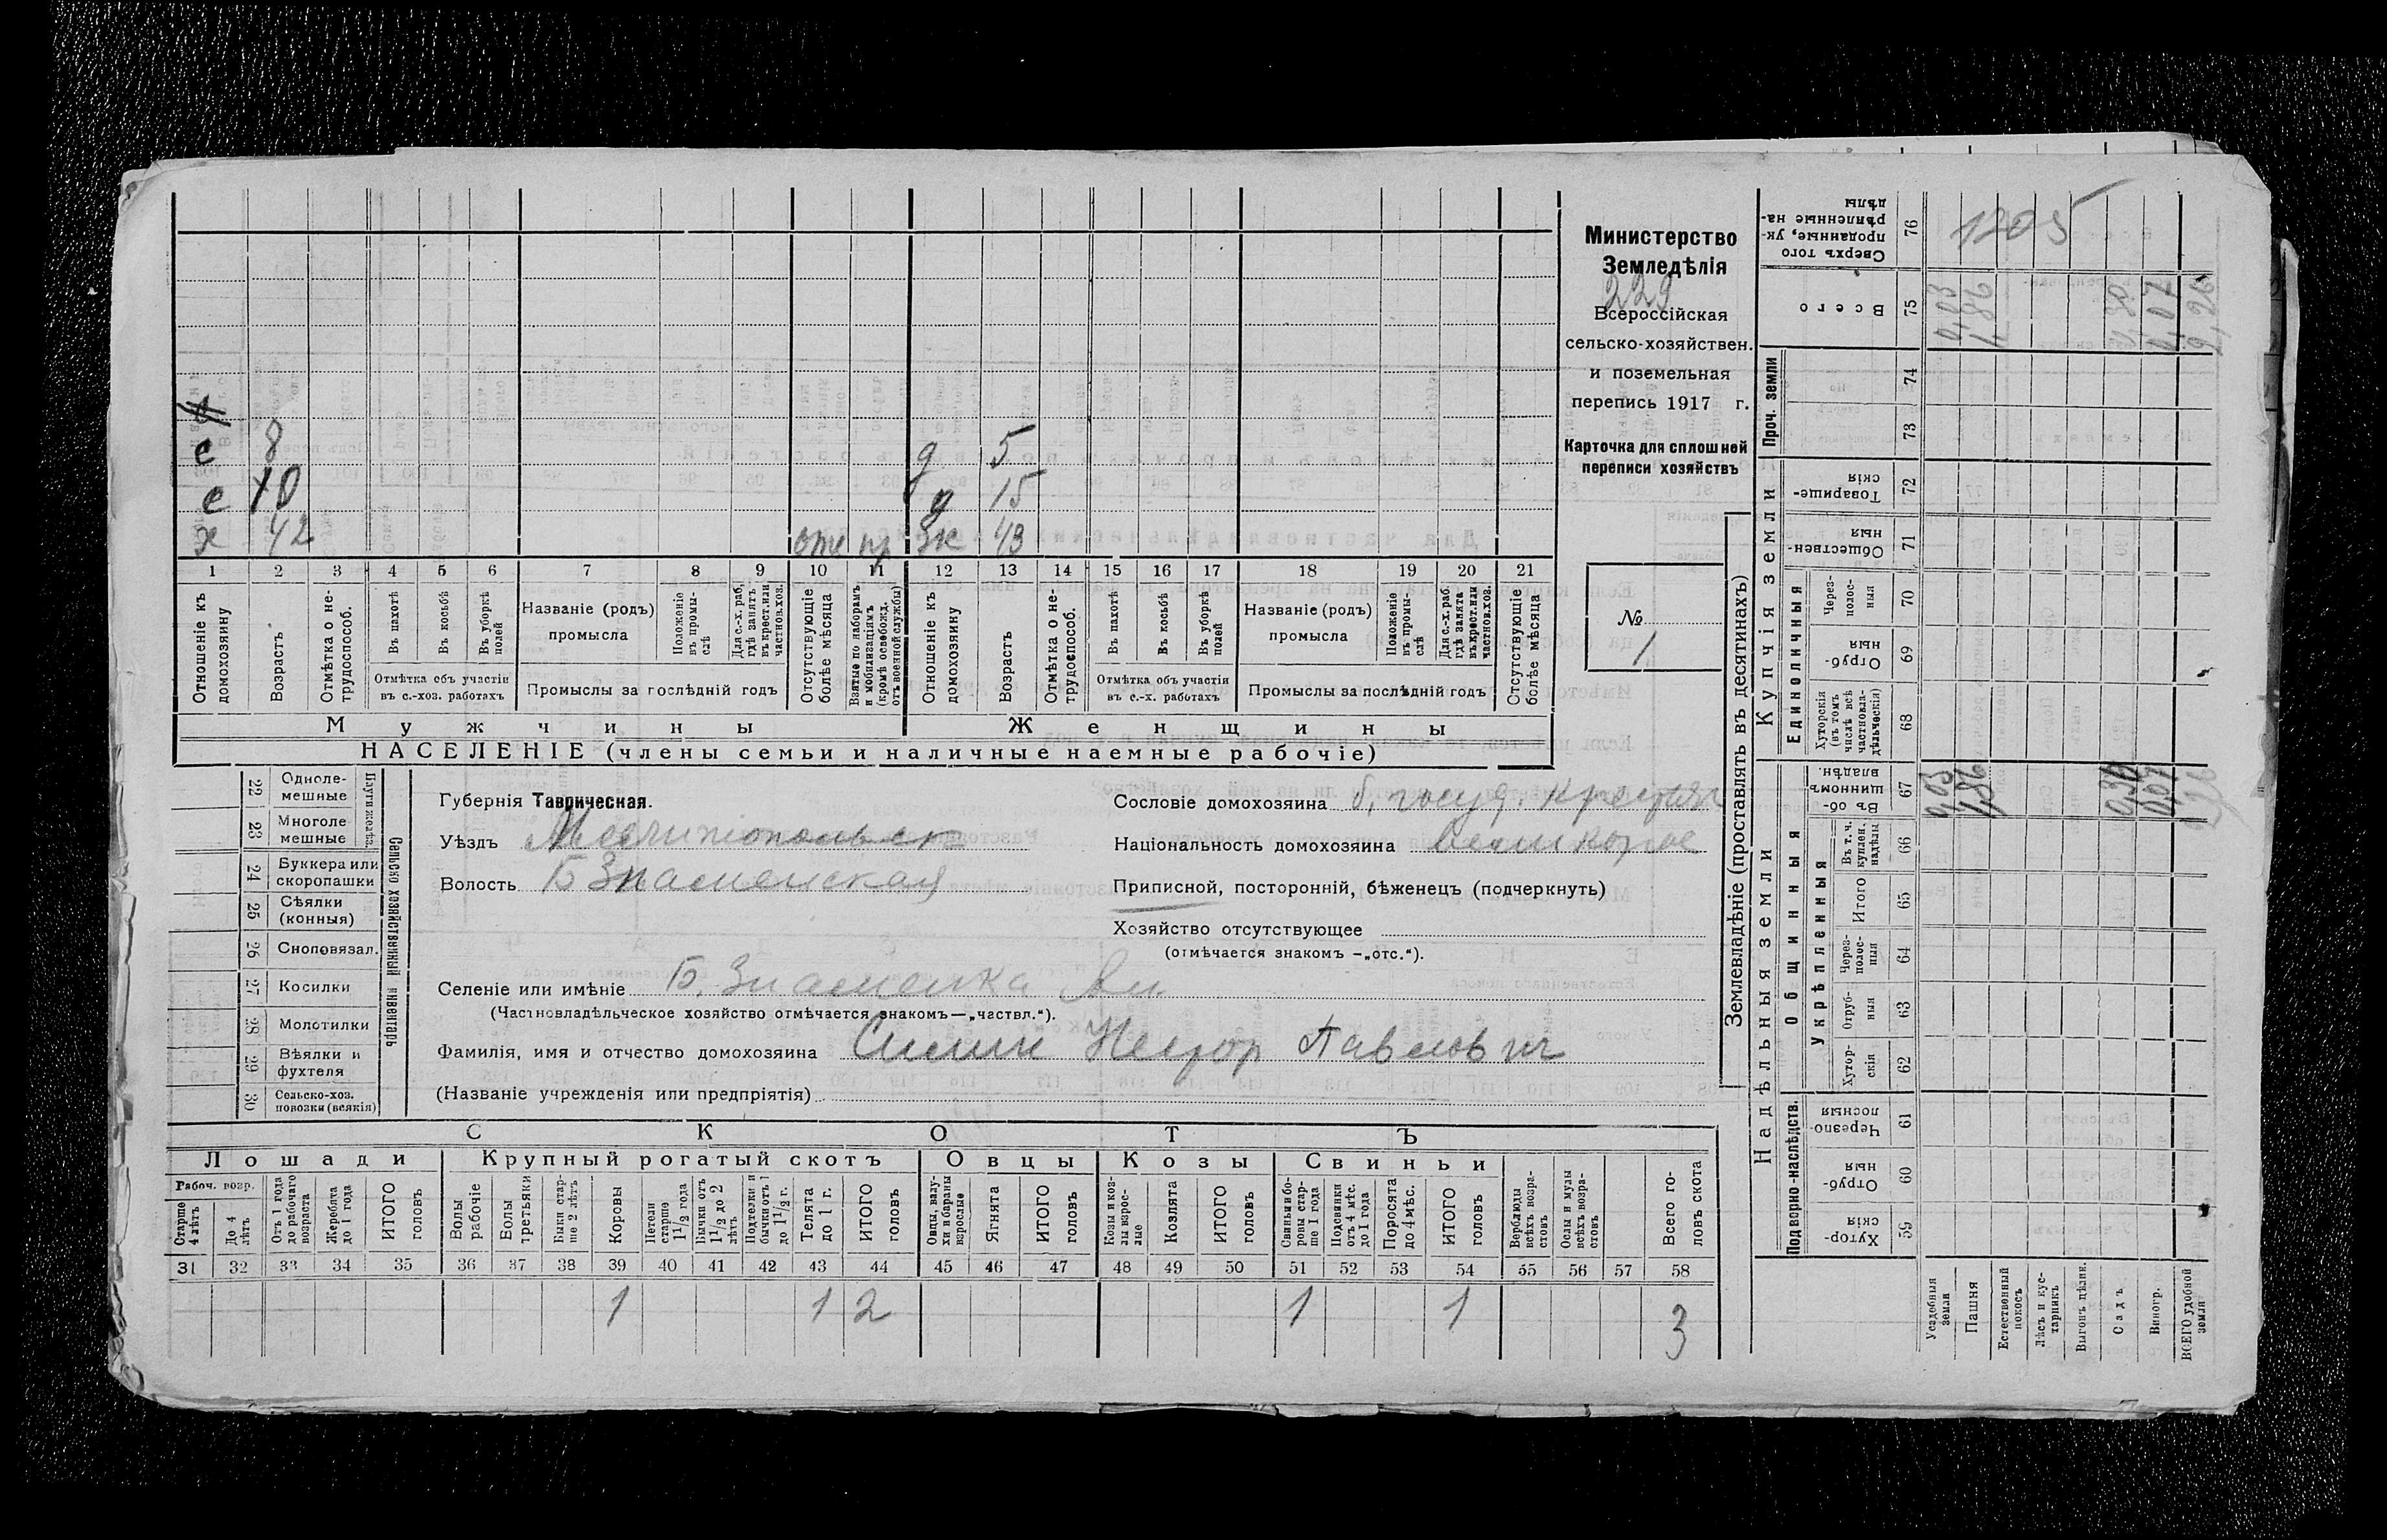 Министерство
Земледѣлія
229
Всероссійская
сельско-хозяйствен.
и поземельная
перепись 1917 г.
Карточка для сплошней
переписи хозяйствъ
№
1
с 8 д 5
с 10 д 15
х 42 отс пр Жк 43
1 2 3 4 5 6 7 8 9 10 11 12 13 14 15 16 17 18 19 20 21
Отношеніе къ домохозяину
Возрастъ
Отмѣтка о не-трудоспособ.
Въ пахотѣ
Въ косьбѣ
Въ уборкѣ полей
Отмѣтка объ участіи въ с.-хоз. работахъ
Названіе (родъ) промысла
Положеніе въ промы-слѣ
Для с.-х. раб. гдѣ занятъ въ крест. или частнов. хоз.
Промыслы за послѣдній годъ
Отсутствующіе болѣе мѣсяца
Взятые по наборамъ и мобилизаціямъ (кромѣ освобожд. отъ военной службы)
Отношеніе къ домохозяину
Возрастъ
Отмѣтка о не-трудоспособ.
Въ пахотѣ
Въ косьбѣ
Въ уборкѣ полей
Отмѣтка объ участіи въ с.-х. работахъ
Названіе (родъ) промысла
Положеніе въ промы-слѣ
Для с.-х. раб. гдѣ занята въ крест. или частнов. хоз.
Промыслы за послѣдній годъ
Отсутствующіе болѣе мѣсяца
Мужчины Женщины
НАСЕЛЕНІЕ (члены семьи и наличные наемные рабочіе)
22 Одноле-мешные
23 Многоле мешные
Плуги желѣз.
24 Буккера или скоропашки
25 Сѣялки (конныя)
26 Сноповязал.
27 Косилки
28 Молотилки
29 Вѣялки и фухтеля
30 Сельско-хоз. повозки (всякія)
Сельско хозяйственный инвентарь
Губернія Таврическая.
Уѣздъ Мелитопольск
Волость Б Знаменская
Сословіе домохозяина б. госуд. крестян
Національность домохозяина великорос
Приписной, посторонній, бѣженецъ (подчеркнуть)
Хозяйство отсутствующее
(отмѣчается знакомъ -„отс.“).
Селеніе или имѣніе Б. Знаменка
(Частновладѣльческое хозяйство отмѣчается знакомъ—„частвл.“).
Фамилія, имя и отчество домохозяина Силин Нестор Павлович
(Названіе учрежденія или предпріятія)
СКОТЪ
Лошади Крупный рогатый скотъ Овцы Козы Свиньи
Рабоч. возр.
Старше 4 лѣтъ
До 4 лѣтъ
Отъ 1 года до рабочаго возраста
Жеребята до 1 года
ИТОГО головъ
Волы рабочіе
Волы третьяки
Быки стар-ше 2 лѣтъ
Коровы
Нетели старше 1 1/2 года
Бычки отъ 1 1/2 до 2 лѣтъ
Подтелки и бычки отъ 1 до 1 1/2 г.
Телята до 1 г.
ИТОГО головъ
Овцы, валу-хи и бараны взрослые
Ягнята
ИТОГО головъ
Козы и коз-лы взрос-лые
Козлята
ИТОГО головъ
Свиньи и бо-ровы стар-ше 1 года
Подсвинки отъ 4 мѣс. до 1 года
Поросята до 4 мѣс.
ИТОГО головъ
Верблюды всѣхъ возра-стовъ
Ослы и мулы всѣхъ возра-стовъ
Всего го-ловъ скота
31 32 33 34 35 36 37 38 39 40 41 42 43 44 45 46 47 48 49 50 51 52 53 54 55 56 57 58
1 1 2 1 1 3
Землевладѣніе (проставлять въ десятинахъ)
Сверхъ того проданные, ук-рѣпленные на-дѣлы 76
1205
Всего 75 0,03 1,86 0,30 0,07 2,26
Проч. земли 74 73
Купчія земли
Товарище-скія 72
Обществен-ныя 71
Единоличныя
Через-полос-ныя 70
Отруб-ныя 69
Хуторскія (въ томъ числѣ всѣ частновла-дѣльческія) 68
Надѣльныя земли
Общинныя
Въ об-щинномъ владѣн. 67 0,03 1,86 0,30 0,07 2,26
Укрѣпленныя
Въ т. ч. куплен. надѣлы 66
Итого 65
Через-полос-ныя 64
Отруб-ныя 63
Хутор-скія 62
Подворно-наслѣдств.
Черезпо-лосныя 61
Отруб-ныя 60
Хутор-скія 59
Усадебныя земли
Пашня
Естественный покосъ
Лѣсъ и кус-тарникъ
Выгонъ цѣлин.
Садъ
Виногр.
ВСЕГО удобной земли